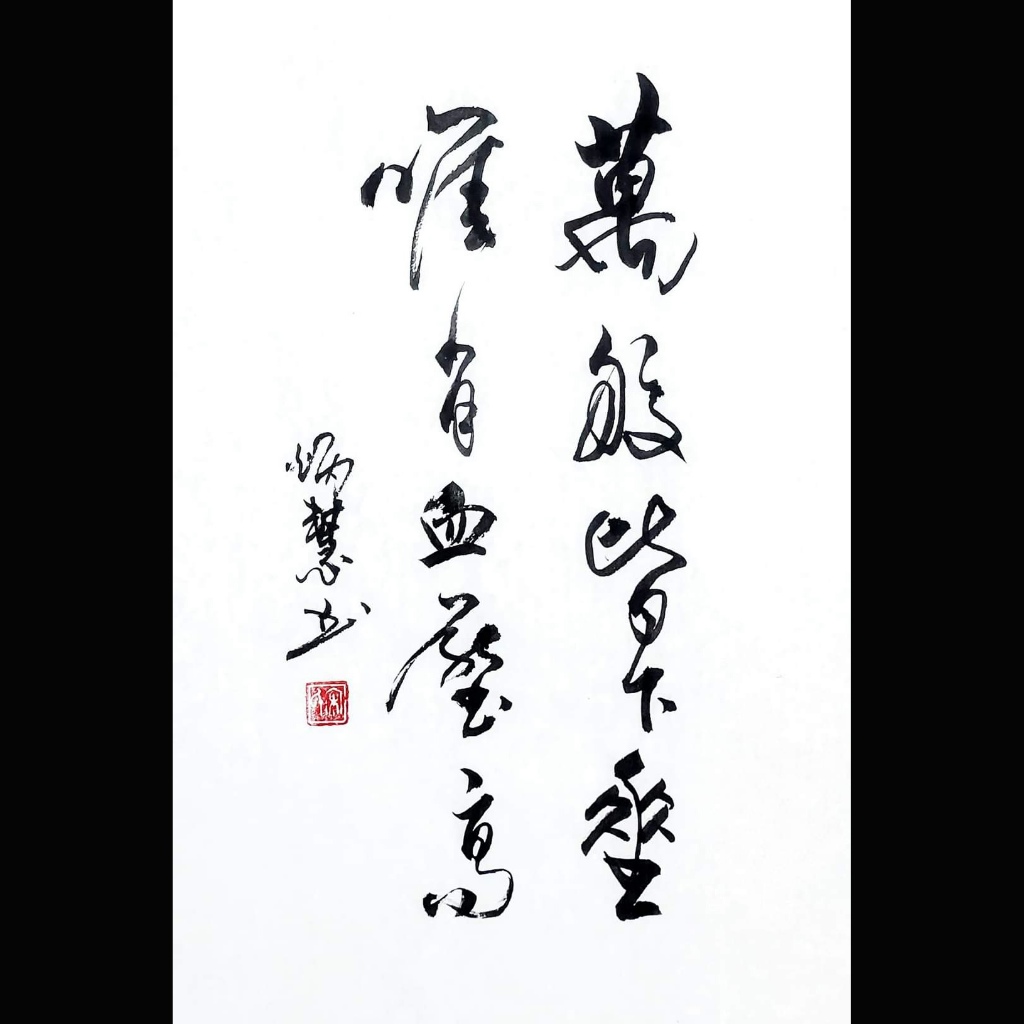 萬般皆下墜
唯有血壓高
炳慧书